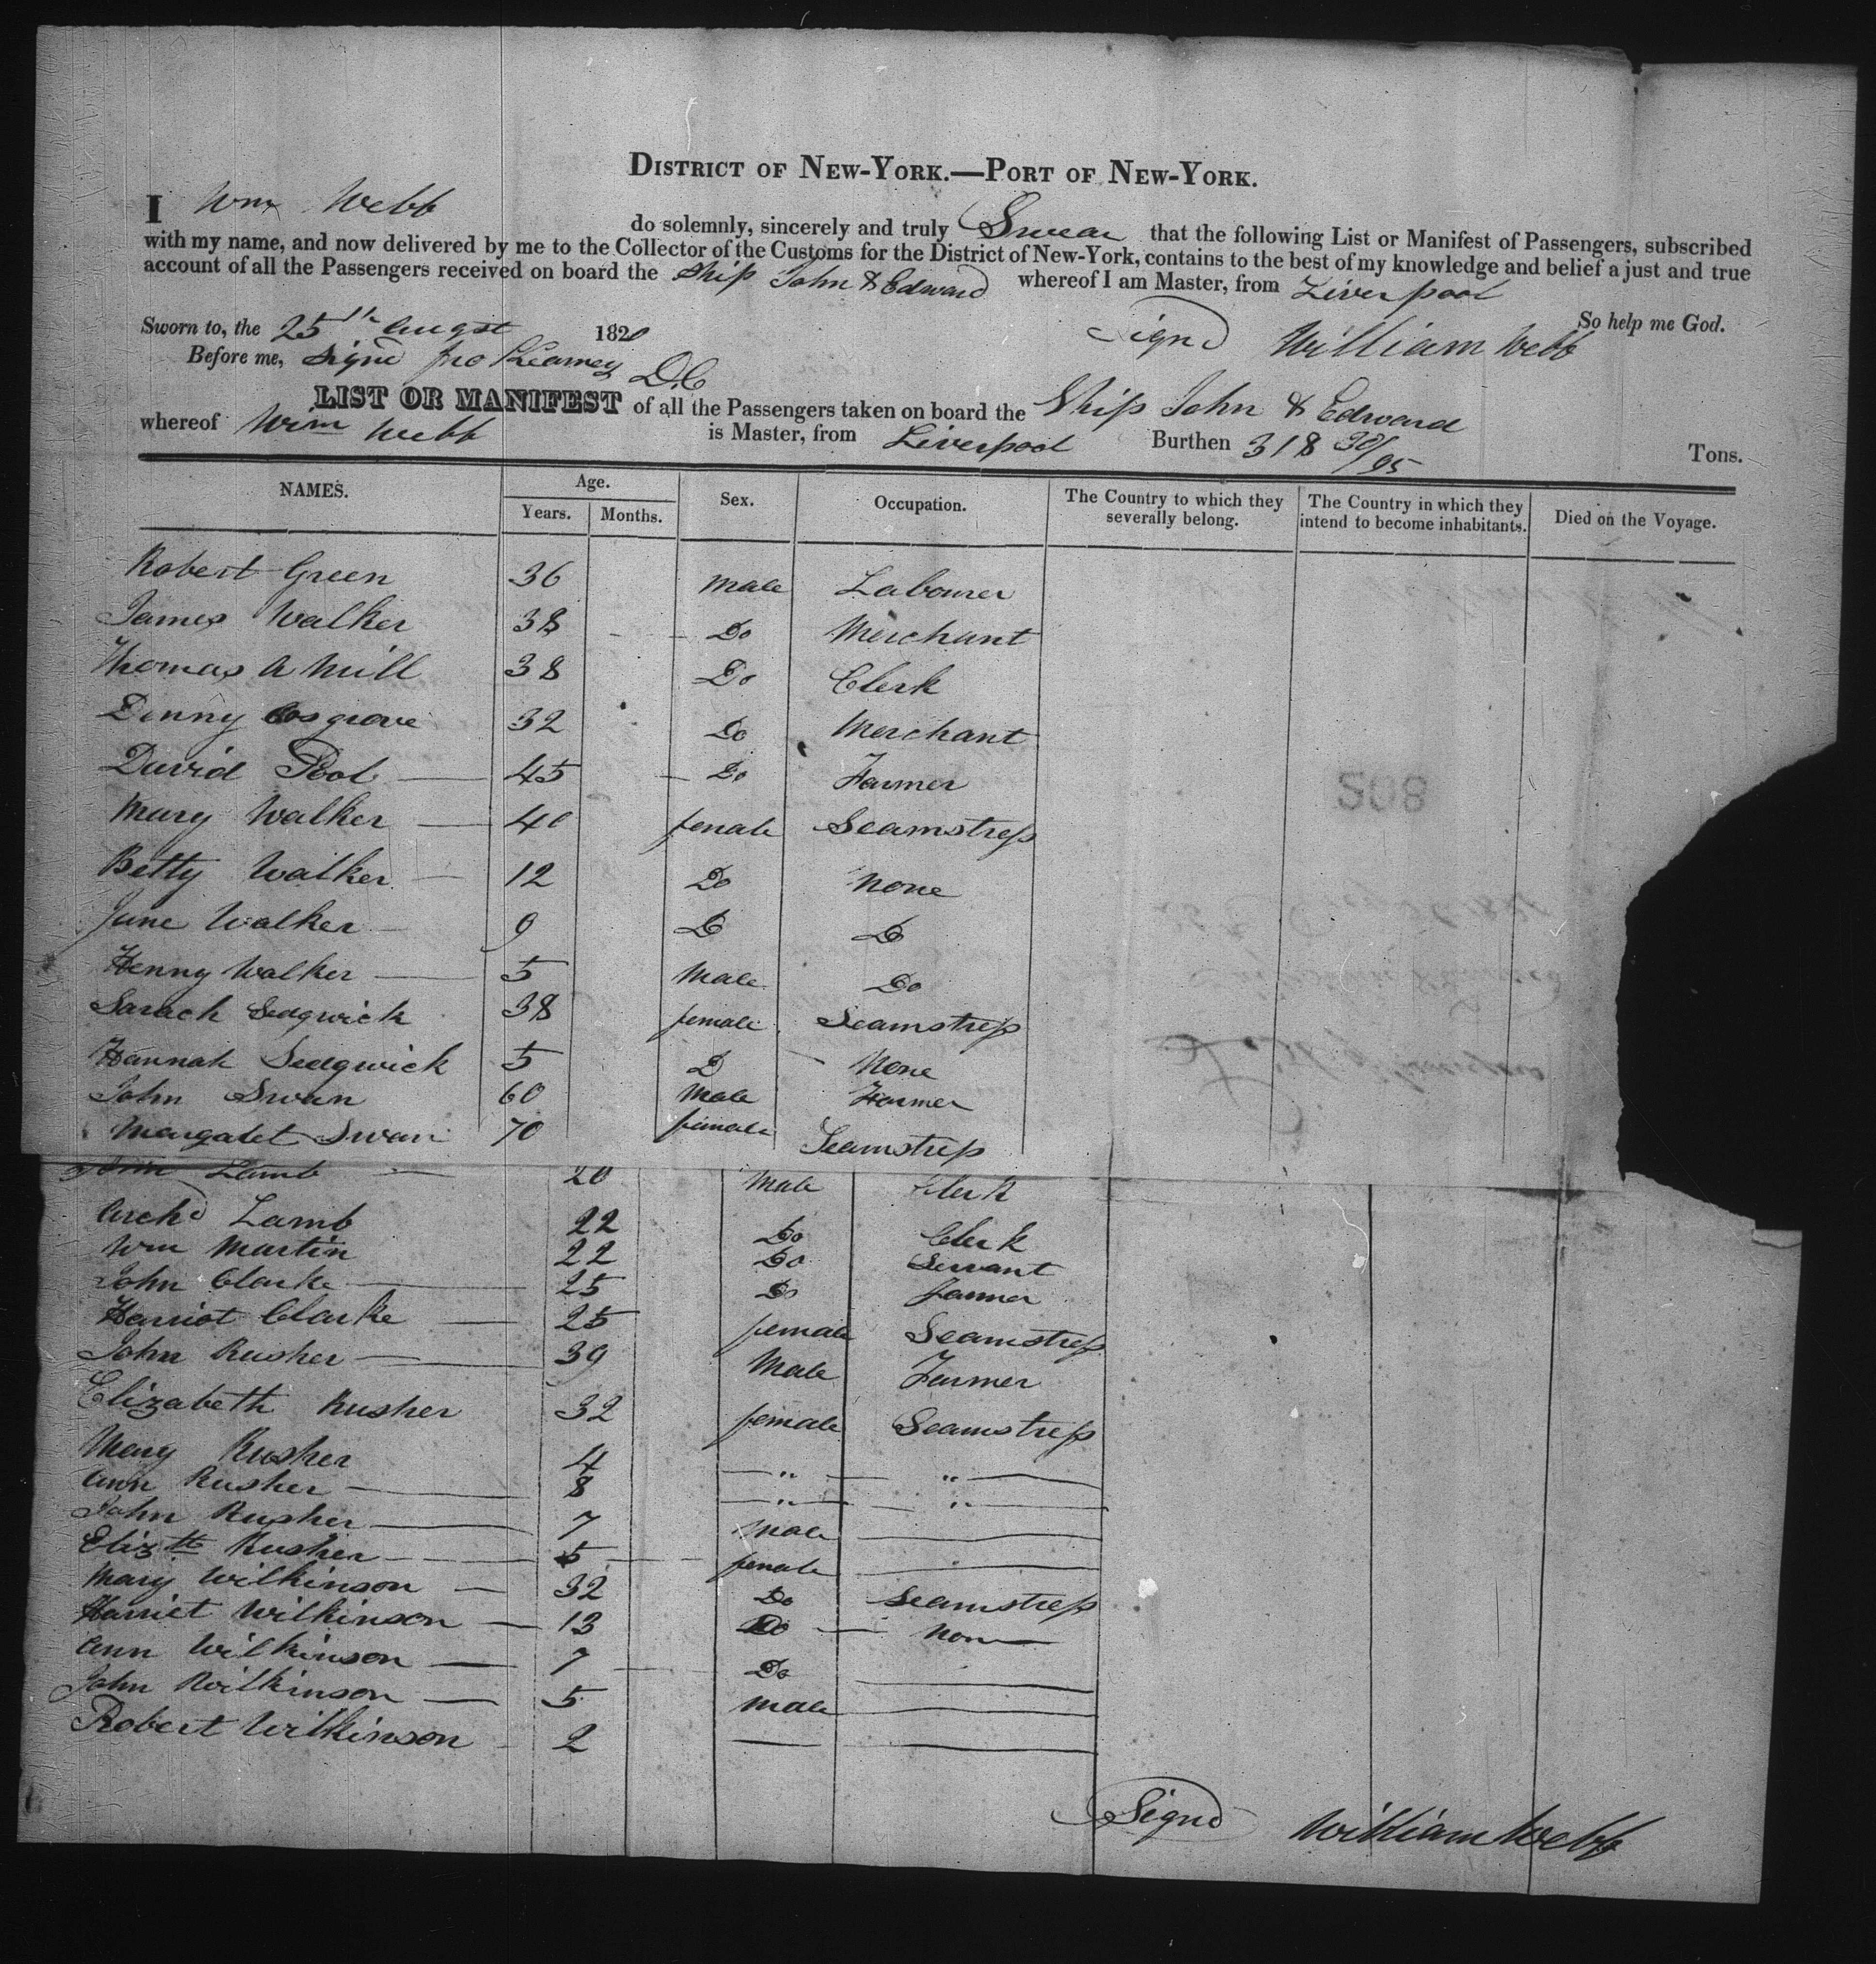 DISTRICT OF NEW-YORK.—PORT OF NEW-YORK.
I Wm Webb do solemnly, sincerely and truly Swear that the following List or Manifest of Passengers, subscribed
with my name, and now delivered by me to the Collector of the Customs for the District of New-York, contains to the best of my knowledge and belief a just and true
account of all the Passengers received on board the Ship John & Edward whereof I am Master, from Liverpool
So help me God.
Sworn to, the 25th Augst 182 Signd William Webb
Before me, Signd Jno Kearney D.C
LIST OR MANIFEST of all the Passengers taken on board the Ship John & Edward
whereof Wim Webb is Master, from Liverpool Burthen 318 30/95 Tons.
NAMES. Age. Years. Months. Sex. Occupation. The Country to which they severally belong. The Country in which they intend to become inhabitants. Died on the Voyage.
Robert Green 36 Male Labourer
James Walker 38 Do Merchant
Thomas A Mill 38 Do Clerk
Denny Cosgrove 32 Do Merchant
David Pool 45 Do Farmer
Mary Walker 40 female Seamstress
Betty Walker 12 Do None
Jane Walker 9 Do Do
Henny Walker 5 Male Do
Sarach Sedgwick 38 female Seamstress
Hannah Sedgwick 5 D None
John Swan 60 Male Farmer
Margatet Swan 70 female Seamstress
John Lamb 20 Male Clerk
Archd Lamb 22 Do Clerk
Wm Martin 22 Do Servant
John Clarke 25 Do farmer
Harriot Clarke 25 female Seamstress
John Rusher 39 Male Farmer
Elizabeth Rusher 32 female Seamstress
Mary Rusher 4 " "
Ann Rusher 8 " "
John Rusher 7 Male
Elizth Rusher 5 female
Mary Wilkinson 32 Do Seamstress
Harriet Wilkinson 13 Do Non
Ann Wilkinson 7 Do
John Wilkinson 5 Male
Robert Wilkinson 2
Signd William Webb